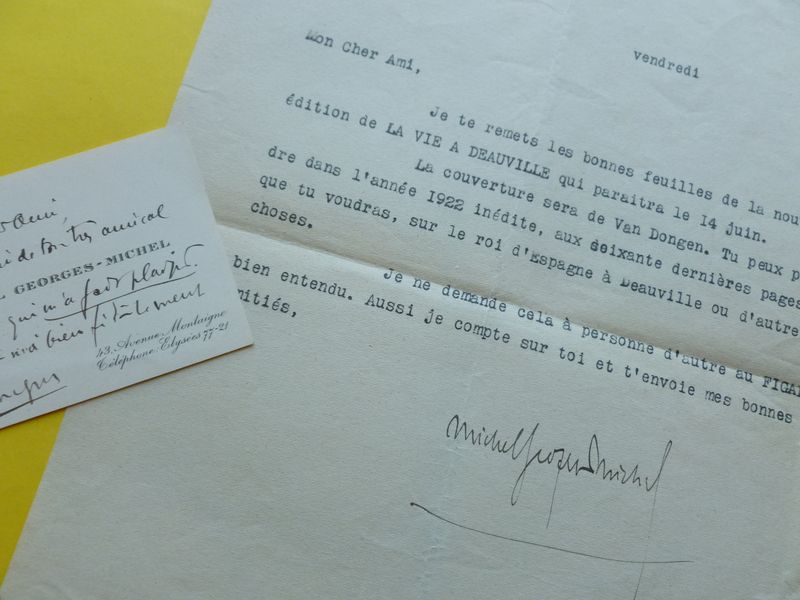 Mon Cher Ami,
vendredi
Je te remets les bonnes feuilles de la nou
édition de LA VIE A DEAUVILLE qui paraitra le 14 juin.
La couverture sera de Van Dongen. Tu peux p
dre dans l'année 1922 inédite, aux deixante dernières pages
que tu voudras, sur le roi d'Espagne à Deauville ou d'autre
choses.
Je ne demande cela à personne d'autre au FIGA
bien entendu. Aussi je compte sur toi et t'envoie mes bonnes
mitiés,
Michel Georges Michel
ami,
de ton très amical
GEORGES-MICHEL
qui m'a fait plaisir.
bien fidèlement
43, Avenue Montaigne
Téléphone, Elysées 77-21